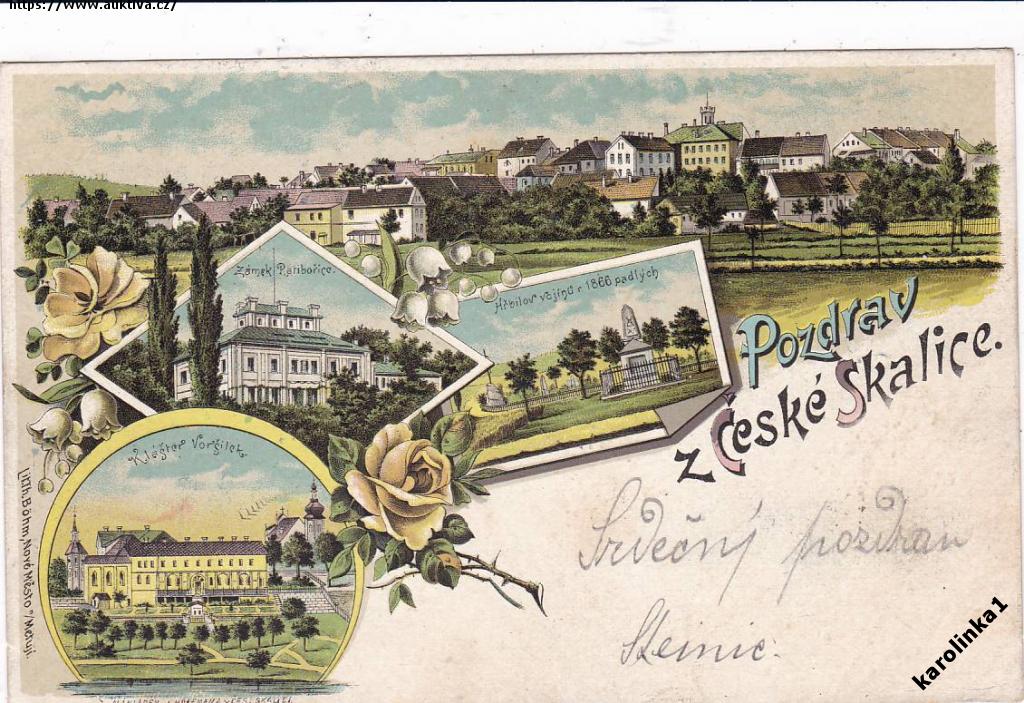 https://www.auktiva.cz/
Zámek Ratibořice.
Hřbitov vojínů r 1866 padlých
Pozdrav
z České Skalice.
Klášter Voršilek.
Lith. Böhm, Nové Město n/Metují.
Srdečný pozdrav
karolinka1